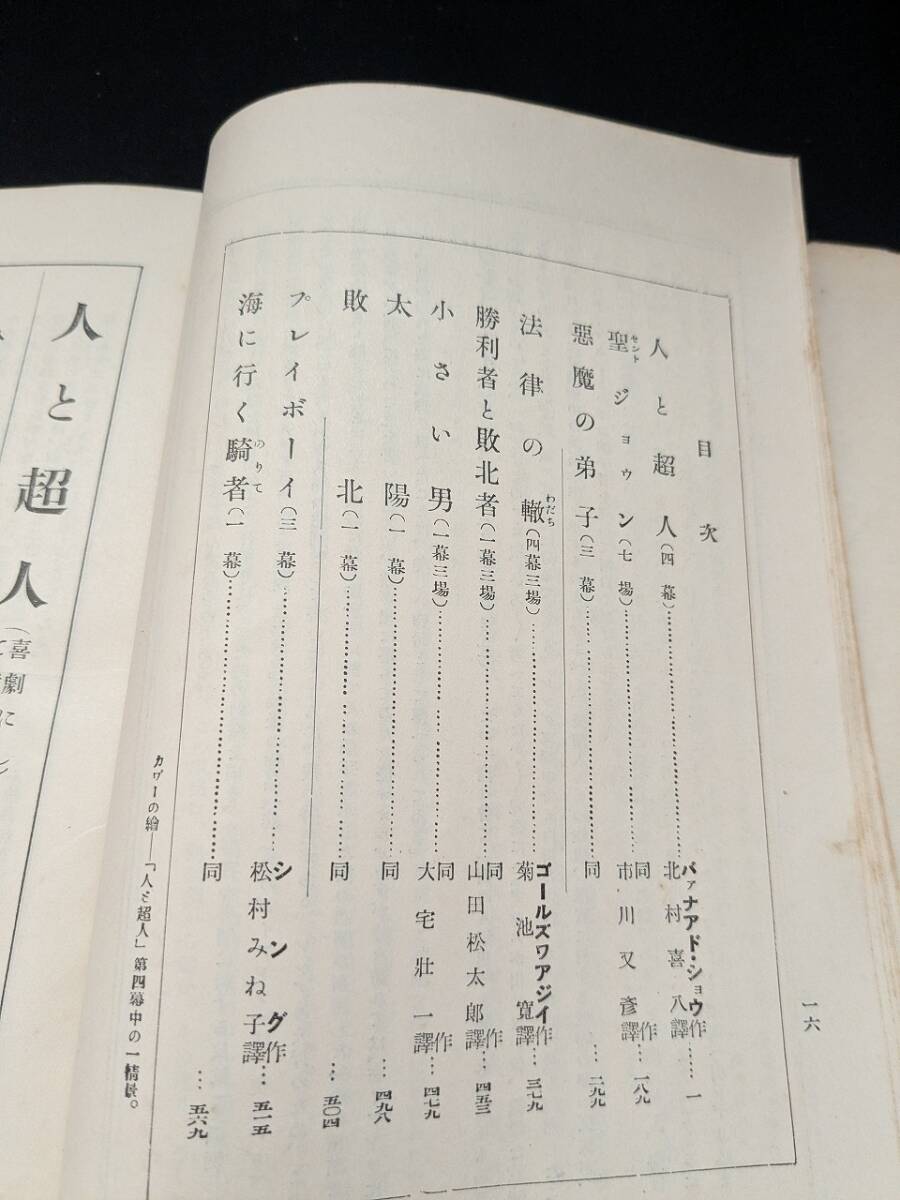 目次
人と超人(四幕)……バァナアド・ショウ作 北村喜八譯……一
聖ジョウン(七場)……同作 市川又彦譯……一八九
セント
惡魔の弟子(三幕)……同……二九九
法律の轍(四幕三場)……ゴールズワアジイ作 菊池寛譯……三七九
わだち
勝利者と敗北者(一幕三場)……同作 山田松太郎譯……四五三
小さい男(一幕三場)……同作 大宅壯一譯……四七九
太陽(一幕)……同……四九八
敗北(一幕)……同……五〇四
プレイボーイ(三幕)……シング作 松村みね子譯……五一五
海に行く騎者(一幕)……同……五六九
のりて
カヴーの繪——「人と超人」第四幕中の一情景。
一六
人と超人
(喜劇に